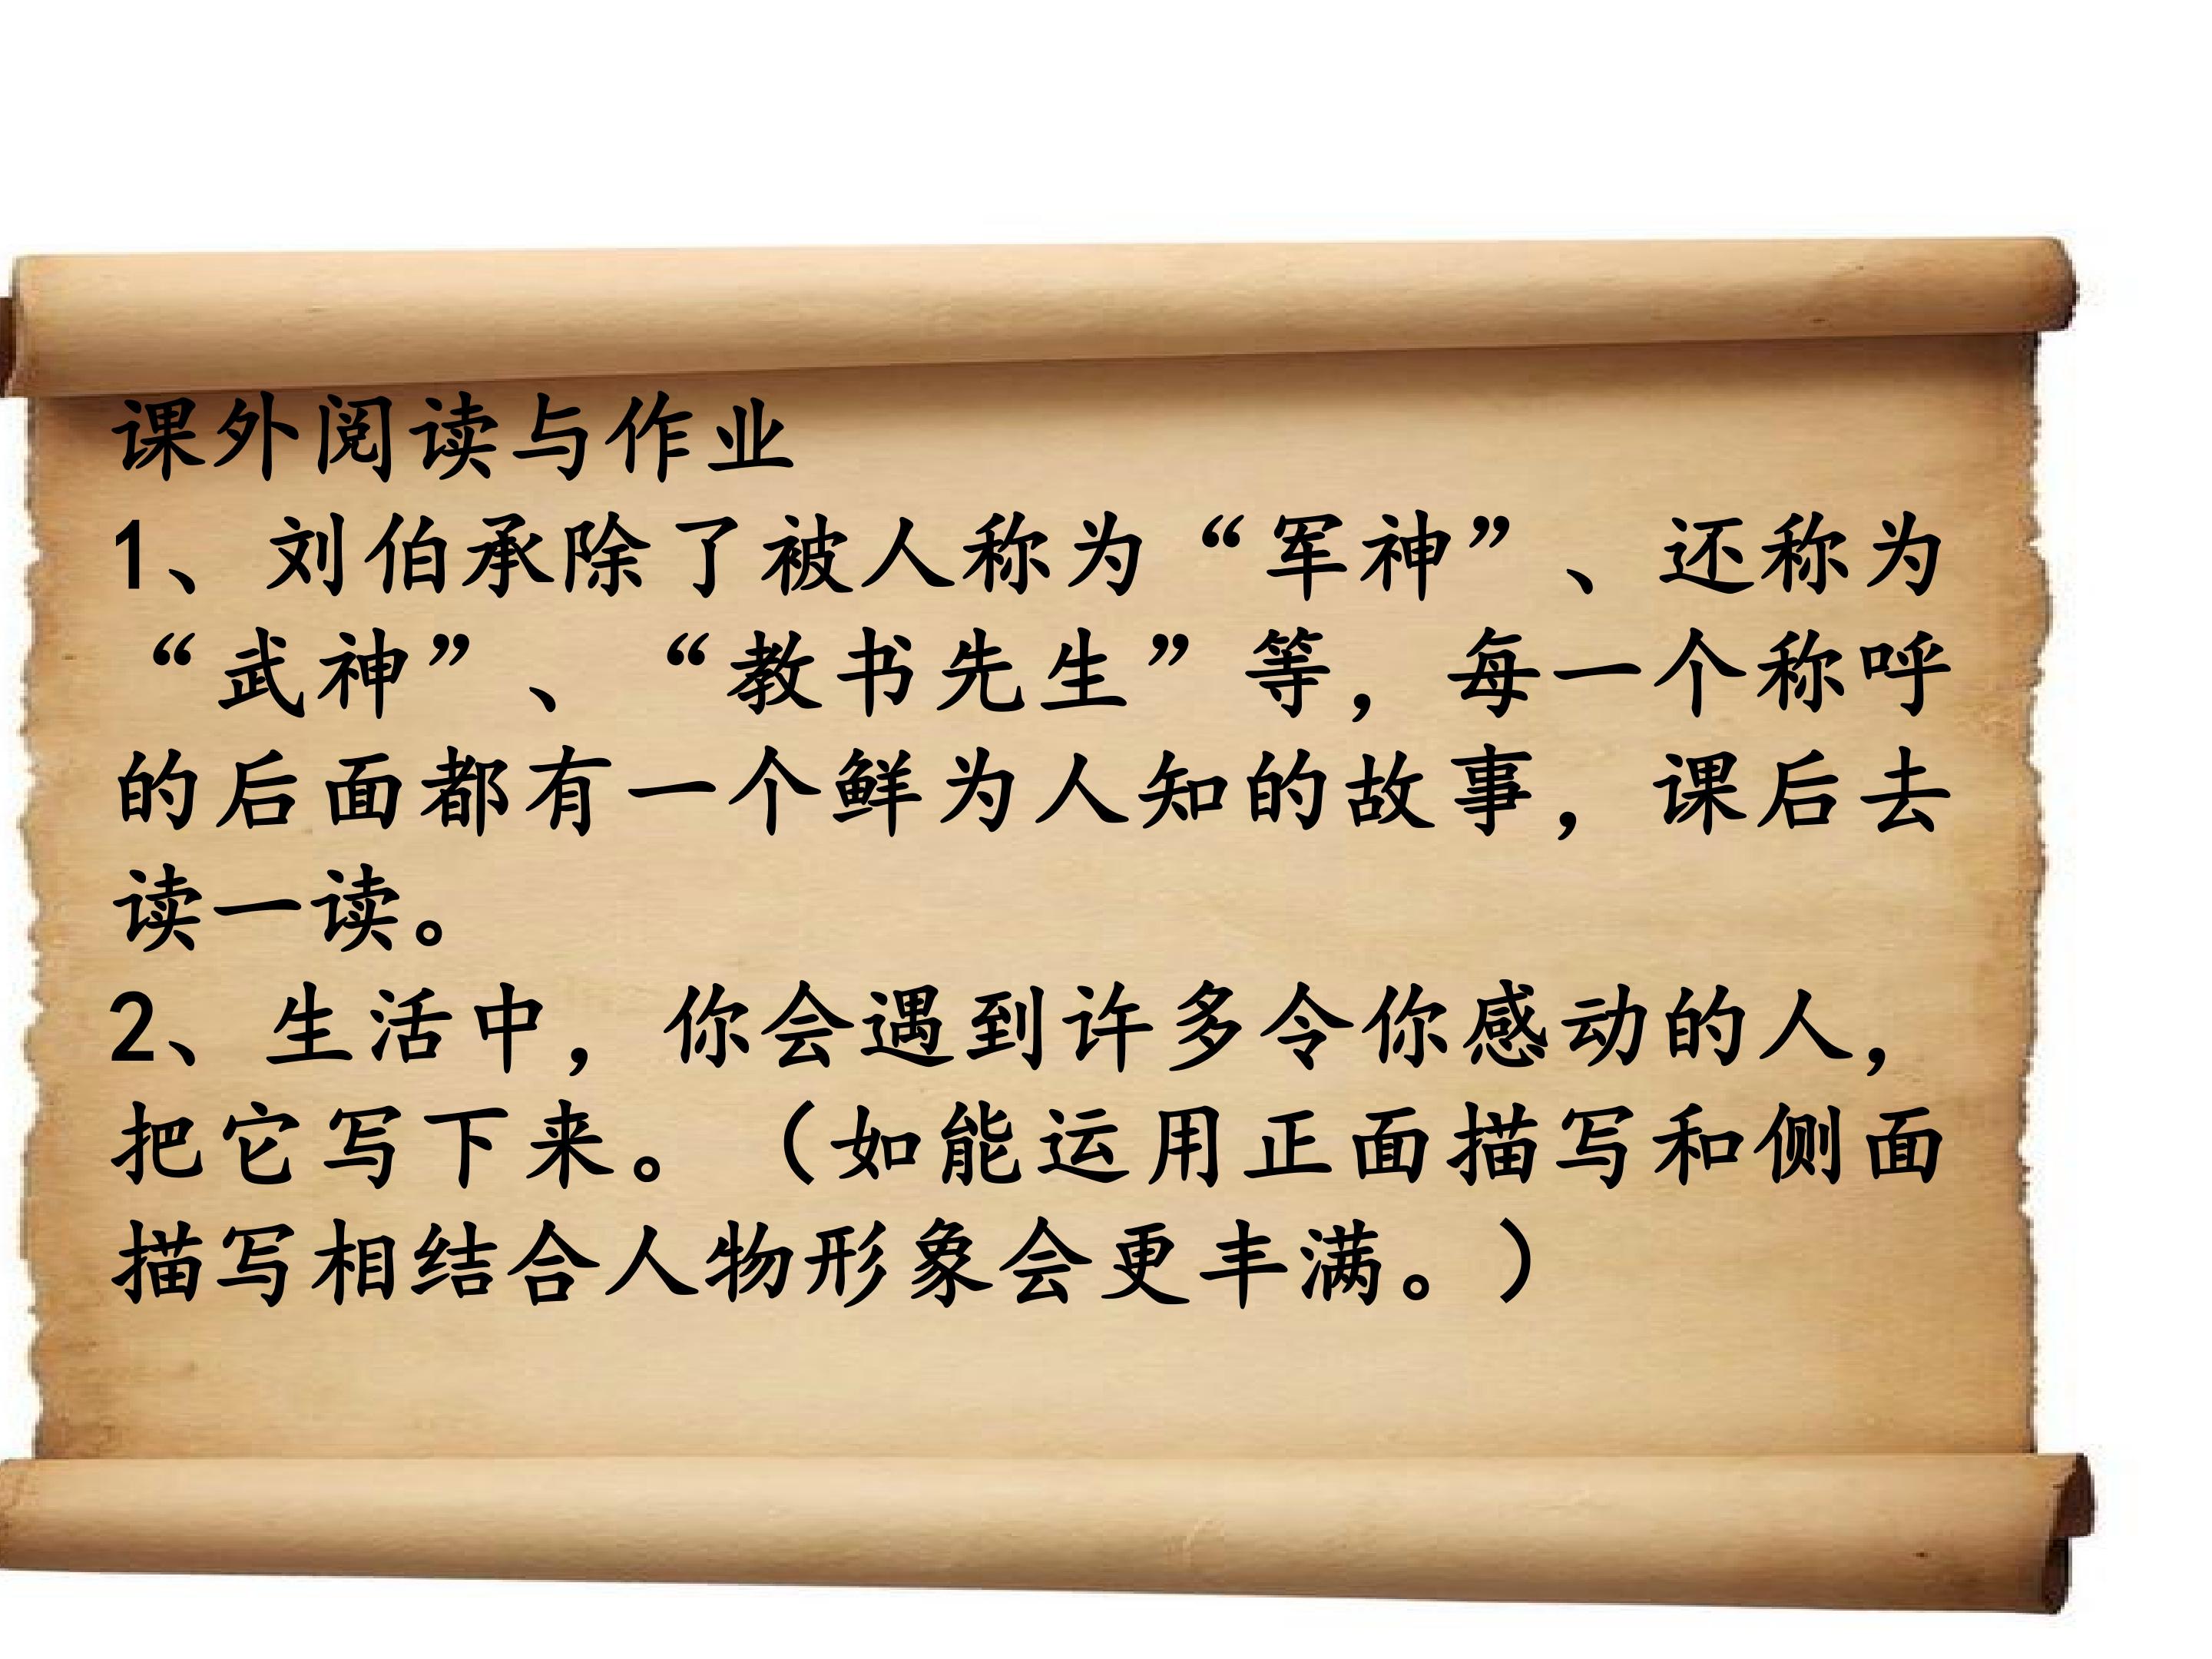 课外阅读与作业
1、刘伯承除了被人称为“军神”、还称为
“武神”、“教书先生”等，每一个称呼
的后面都有一个鲜为人知的故事，课后去
读一读。
2、生活中，你会遇到许多令你感动的人，
把它写下来。（如能运用正面描写和侧面
描写相结合人物形象会更丰满。）